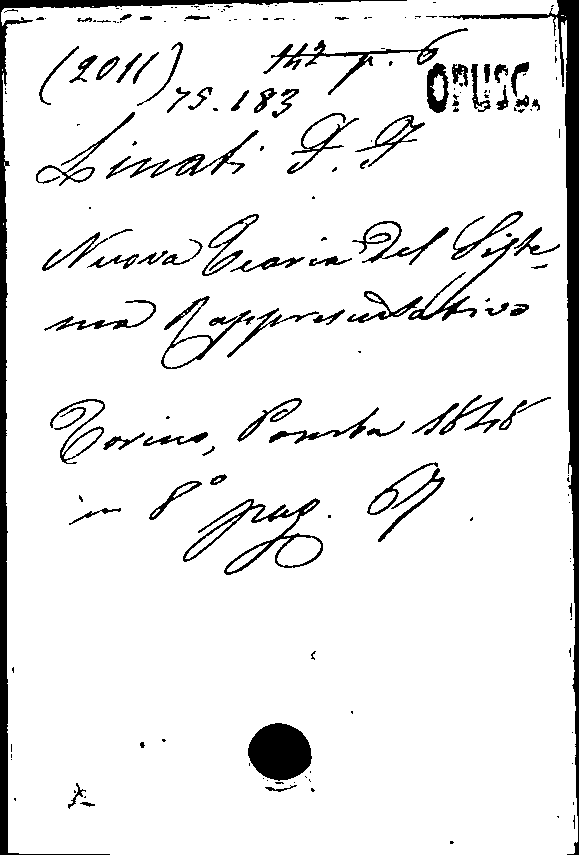 (2011) 142 p. 6
75.183 OPUSC.
Linati F. F
Nuova Teoria del Siste-
ma Rappresentativo
Torino, Pomba 1848
in 8° pag. 67